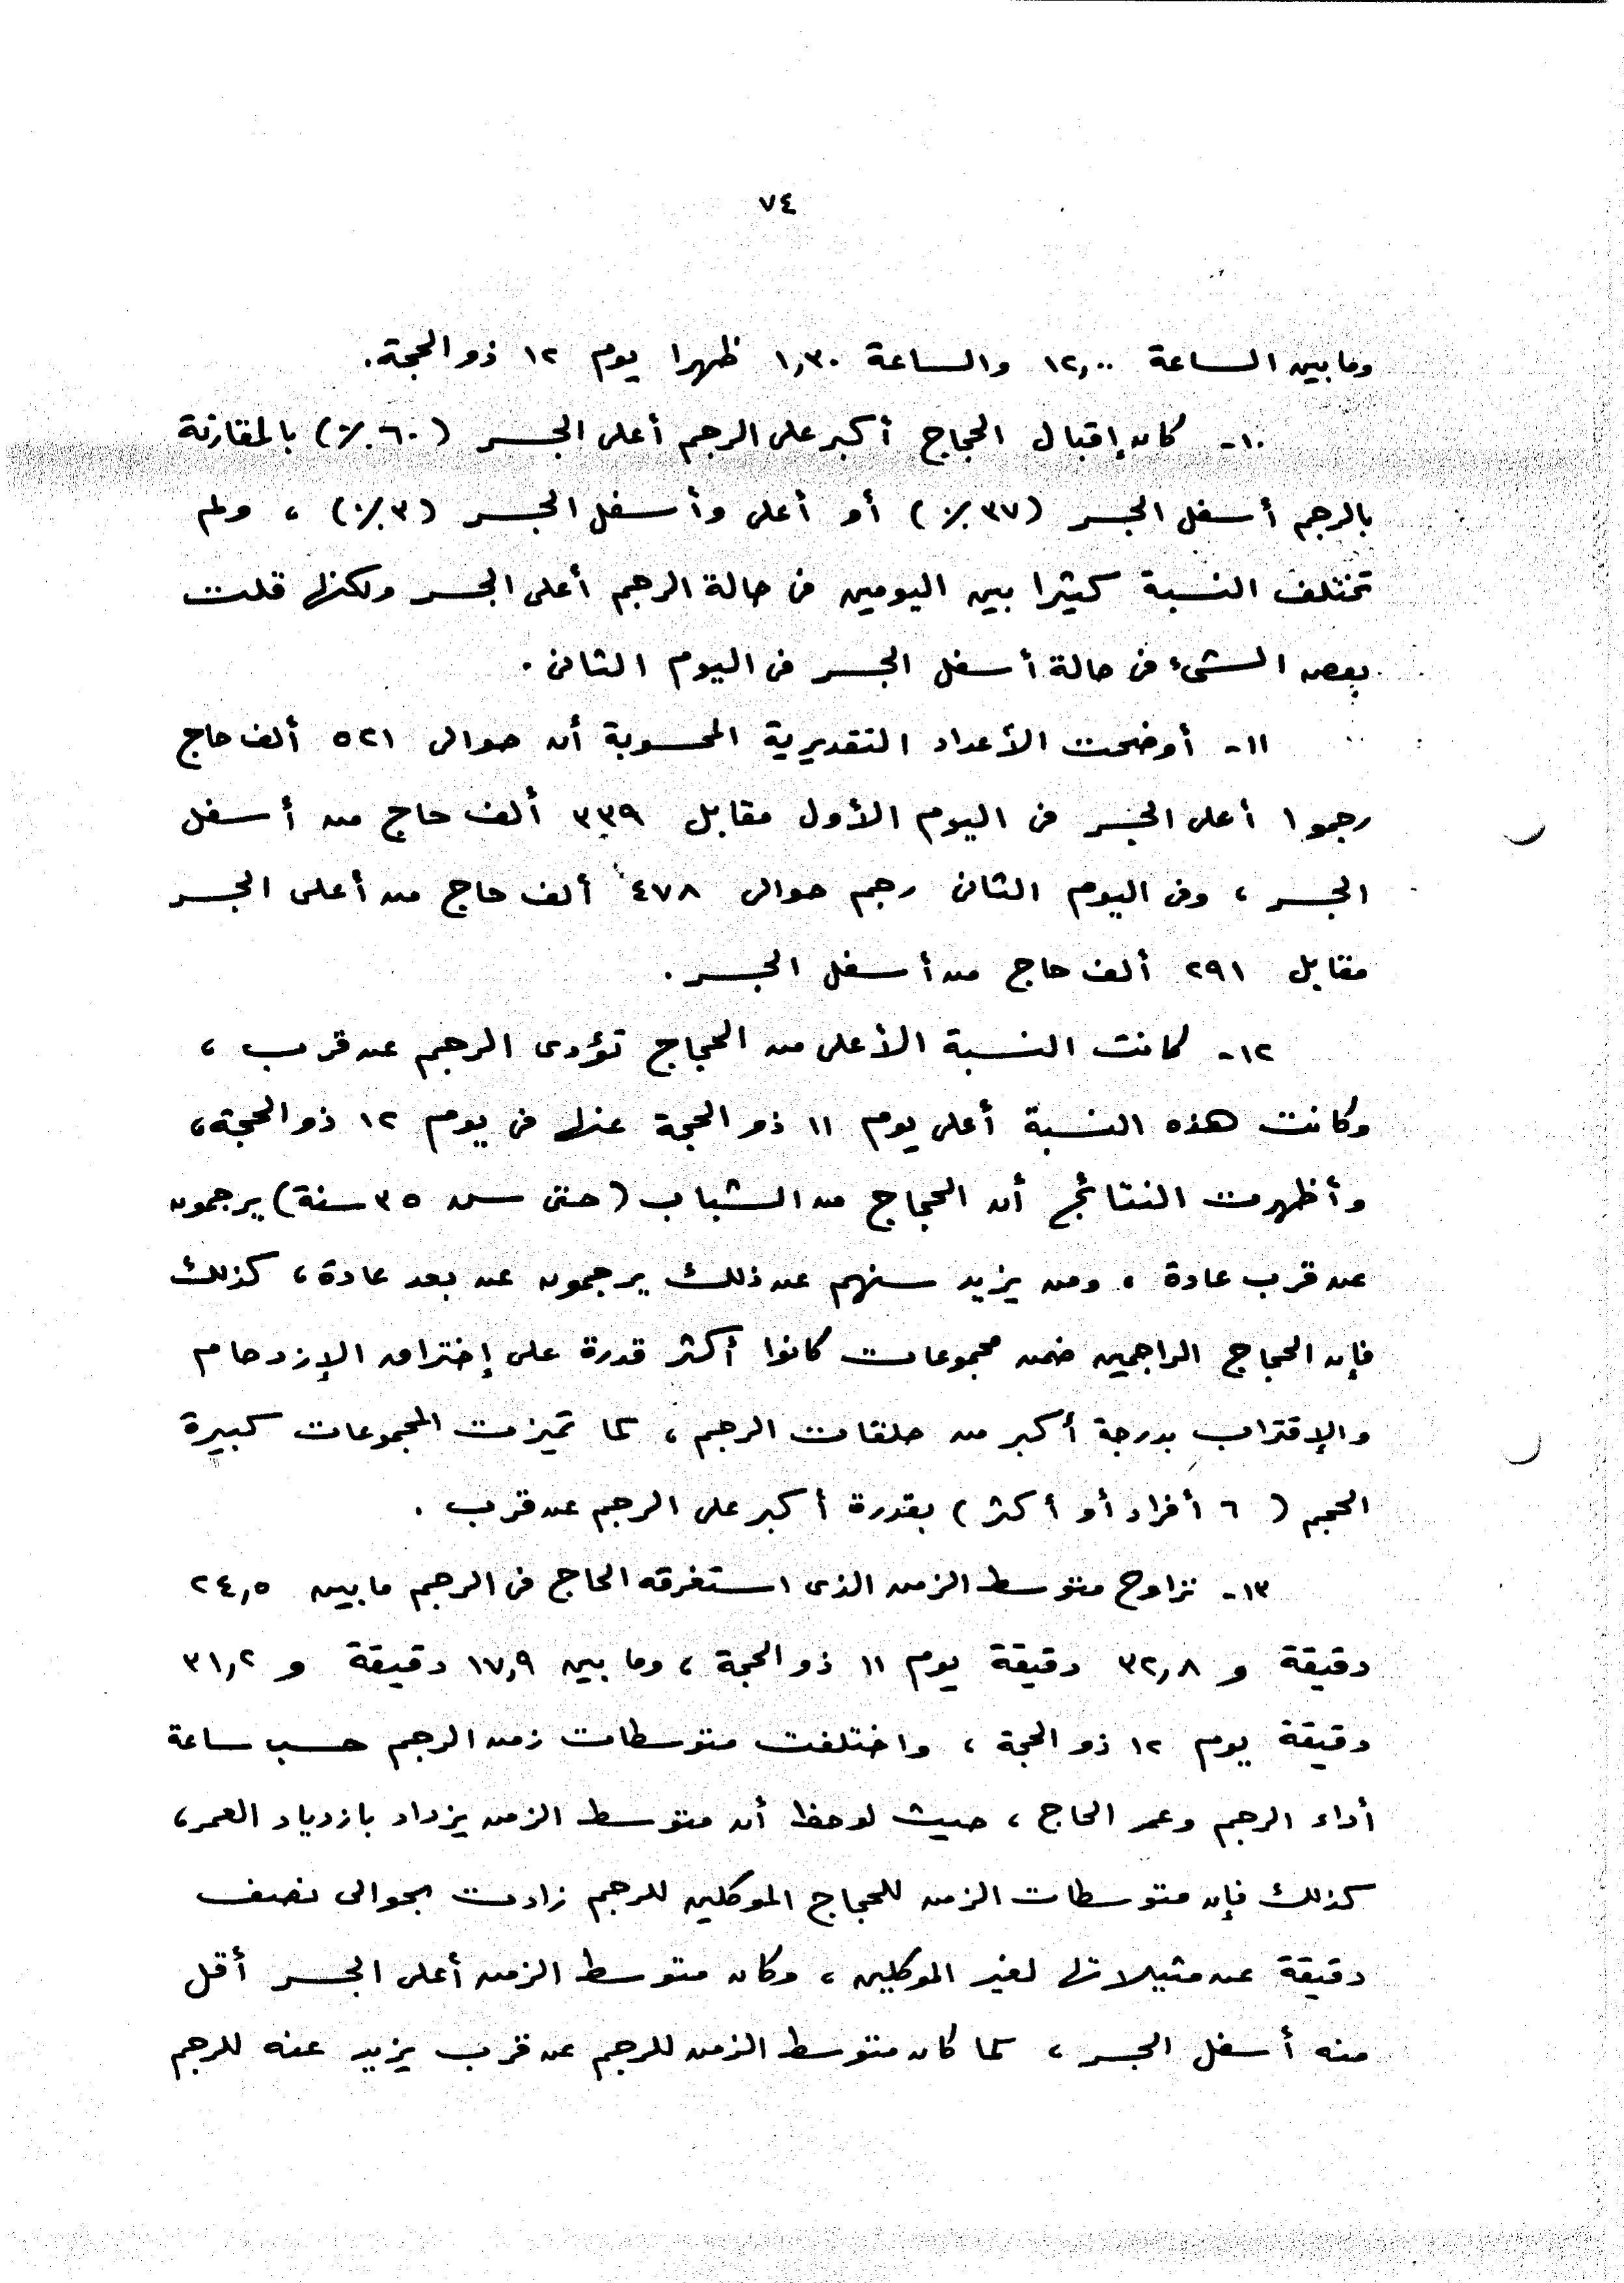 ٧٤
وما بين الساعة ١٢,٠٠ والساعة ١,٣٠ ظهرا يوم ١٢ ذو الحجة.
١٠- كان إقبال الحجاج أكبر على الرجم أعلى الجسر (٦٠٪) بالمقارنة
بالرجم أسفل الجسر (٣٧٪) أو أعلى وأسفل الجسر (٣٪) ، ولم
تختلف النسبة كثيرا بين اليومين فى حالة الرجم أعلى الجسر ولكنها قلت
بعض الشىء فى حالة أسفل الجسر فى اليوم الثانى .
١١- أوضحت الأعداد التقديرية المحسوبة أن حوالى ٥٢١ ألف حاج
رجموا أعلى الجسر فى اليوم الأول مقابل ٣٣٩ ألف حاج من أسفل
الجسر ، وفى اليوم الثانى رجم حوالى ٤٧٨ ألف حاج من أعلى الجسر
مقابل ٢٩١ ألف حاج من أسفل الجسر .
١٢- كانت النسبة الأعلى من الحجاج تؤدى الرجم عن قرب ،
وكانت هذه النسبة أعلى يوم ١١ ذو الحجة عنها فى يوم ١٢ ذو الحجة،
وأظهرت النتائج أن الحجاج من الشباب (حتى سن ٣٥ سنة) يرجمون
عن قرب عادة ، ومن يزيد سنهم عن ذلك يرجمون عن بعد عادة ، كذلك
فإن الحجاج الراجمين ضمن مجموعات كانوا أكثر قدرة على إختراق الإزدحام
والإقتراب بدرجة أكبر من حلقات الرجم ، كما تميزت المجموعات كبيرة
الحجم ( ٦ أفراد أو أكثر ) بقدرة أكبر على الرجم عن قرب .
١٣- تراوح متوسط الزمن الذى استغرقه الحاج فى الرجم ما بين ٢٤,٥
دقيقة و ٣٢,٨ دقيقة يوم ١١ ذو الحجة ، وما بين ١٧,٩ دقيقة و ٣١,٢
دقيقة يوم ١٢ ذو الحجة ، واختلفت متوسطات زمن الرجم حسب ساعة
أداء الرجم وعمر الحاج ، حيث لوحظ أن متوسط الزمن يزداد بازدياد العمر،
كذلك فإن متوسطات الزمن للحجاج الموكلين للرجم زادت بحوالى نصف
دقيقة عن مثيلاتها لغير الموكلين ، وكان متوسط الزمن أعلى الجسر أقل
منه أسفل الجسر ، كما كان متوسط الزمن للرجم عن قرب يزيد عنه للرجم